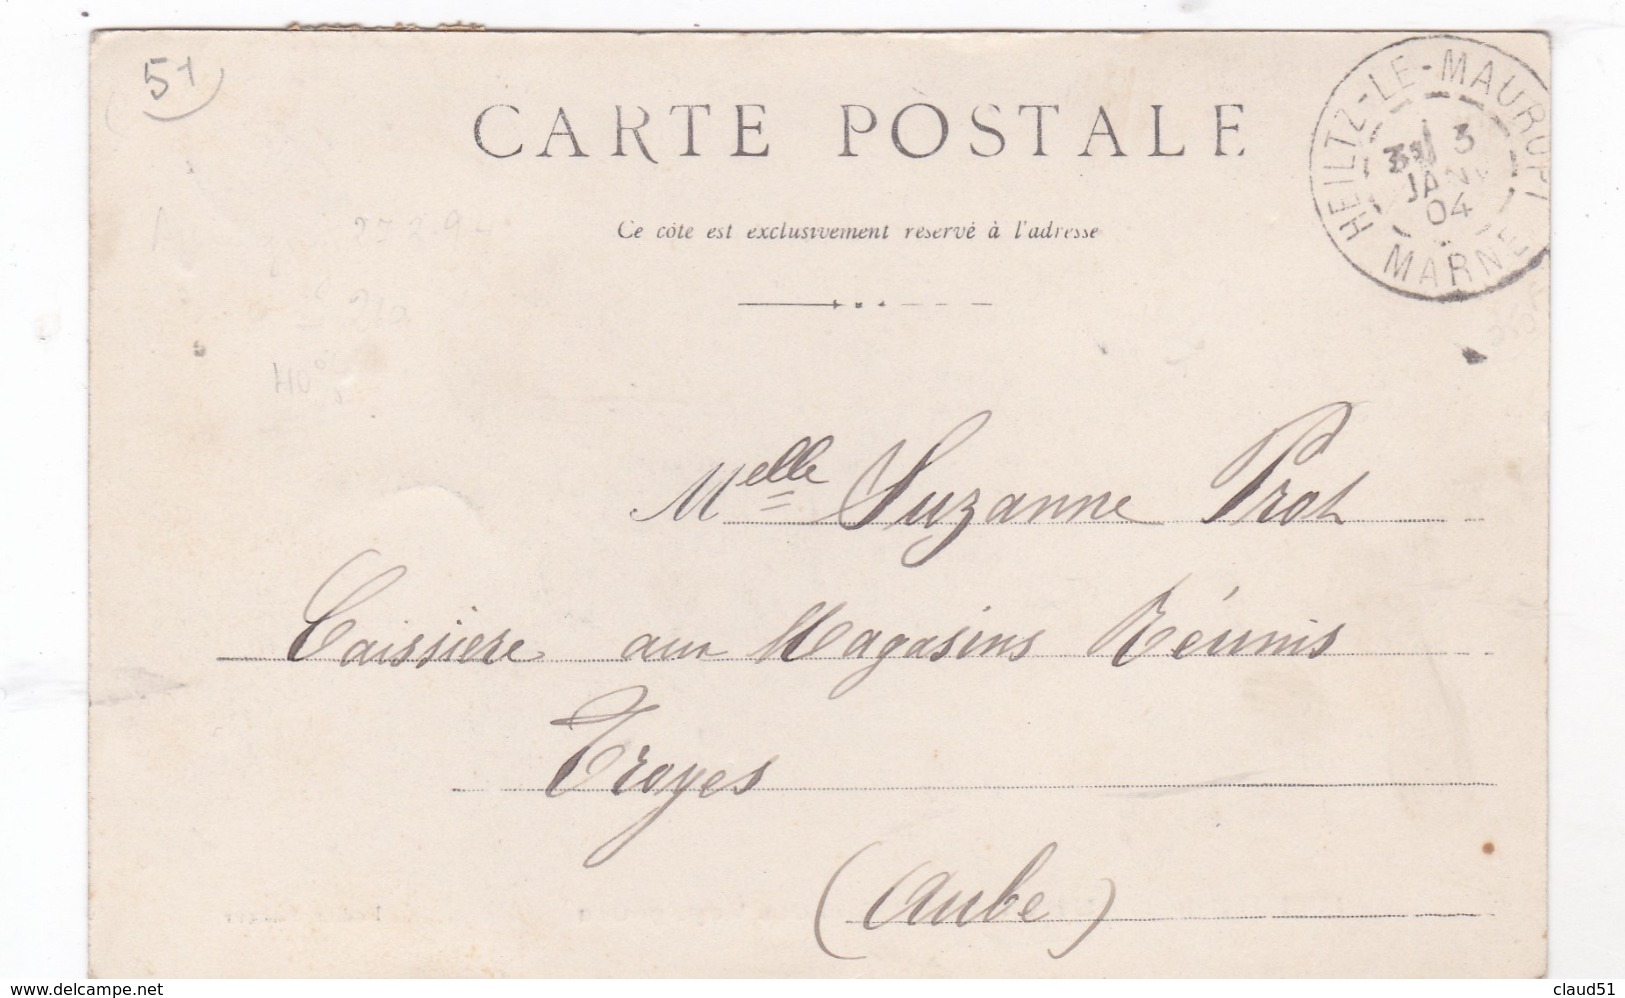 51
CARTE POSTALE
Ce côté est exclusivement réservé à l'adresse
HEILTZ-LE-MAURUPT
3
JANV
04
MARNE
Melle Suzanne Prot
Caissière aux Magasins Réunis
Troyes
(Aube)
www.delcampe.net
claud51